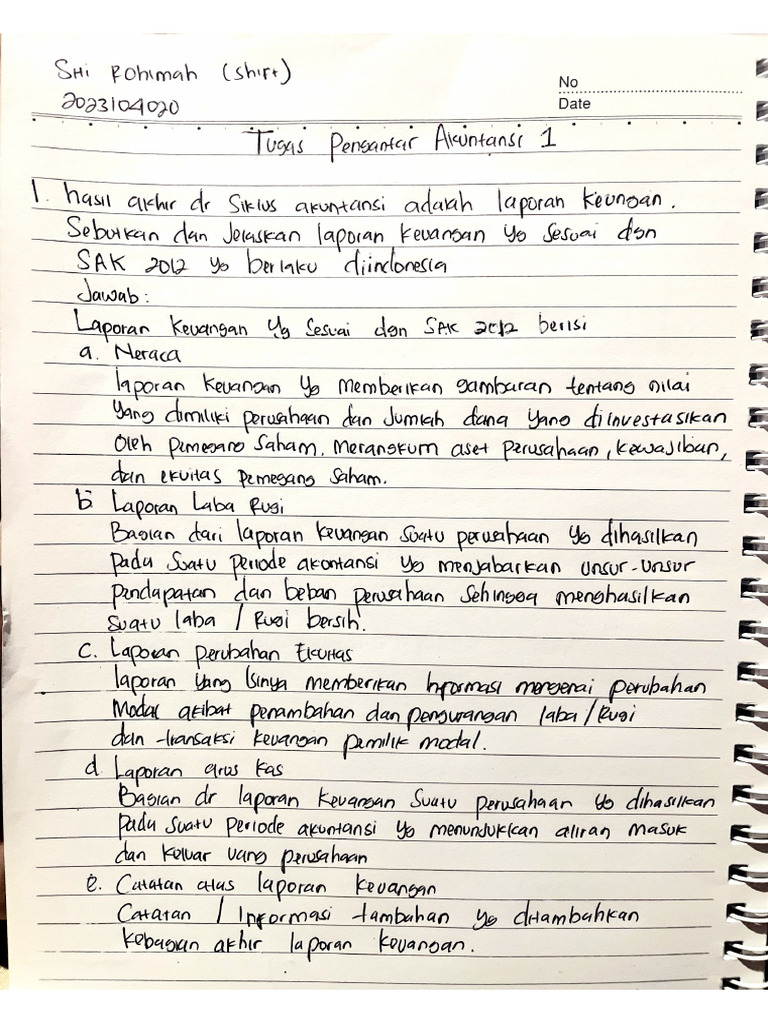 Siti Rohimah (Shirt)
2023104020
No
Date
Tugas Pengantar Akuntansi 1
1. hasil akhir dr Siklus akuntansi adalah laporan keuangan.
Sebutkan dan Jelaskan laporan keuangan yg sesuai dgn
SAK 2012 yg berlaku diindonesia
Jawab:
Laporan keuangan yg sesuai dgn SAK 2012 berisi
a. Neraca
laporan keuangan yg memberikan gambaran tentang nilai
yang dimiliki perusahaan dan Jumlah dana yang diinvestasikan
oleh pemegang saham. Merangkum aset perusahaan, kewajiban,
dan ekuitas pemegang saham.
b Laporan Laba Rugi
Bagian dari laporan keuangan suatu perusahaan yg dihasilkan
pada suatu periode akontansi yg menjabarkan unsur-unsur
pendapatan dan beban perusahaan sehingga menghasilkan
suatu laba / Rugi bersih.
c. Laporan perubahan Ekuitas
laporan yang isinya memberikan Informasi mengenai perubahan
Modal akibat penambahan dan pengurangan laba / Rugi
dan transaksi keuangan pemilik modal.
d. Laporan arus kas
Bagian dr laporan keuangan suatu perusahaan yg dihasilkan
pada suatu periode akuntansi yg menunjukkan aliran masuk
dan keluar uang perusahaan
e. Catatan atas laporan keuangan
Catatan / Informasi tambahan yg ditambahkan
kebagian akhir laporan keuangan.